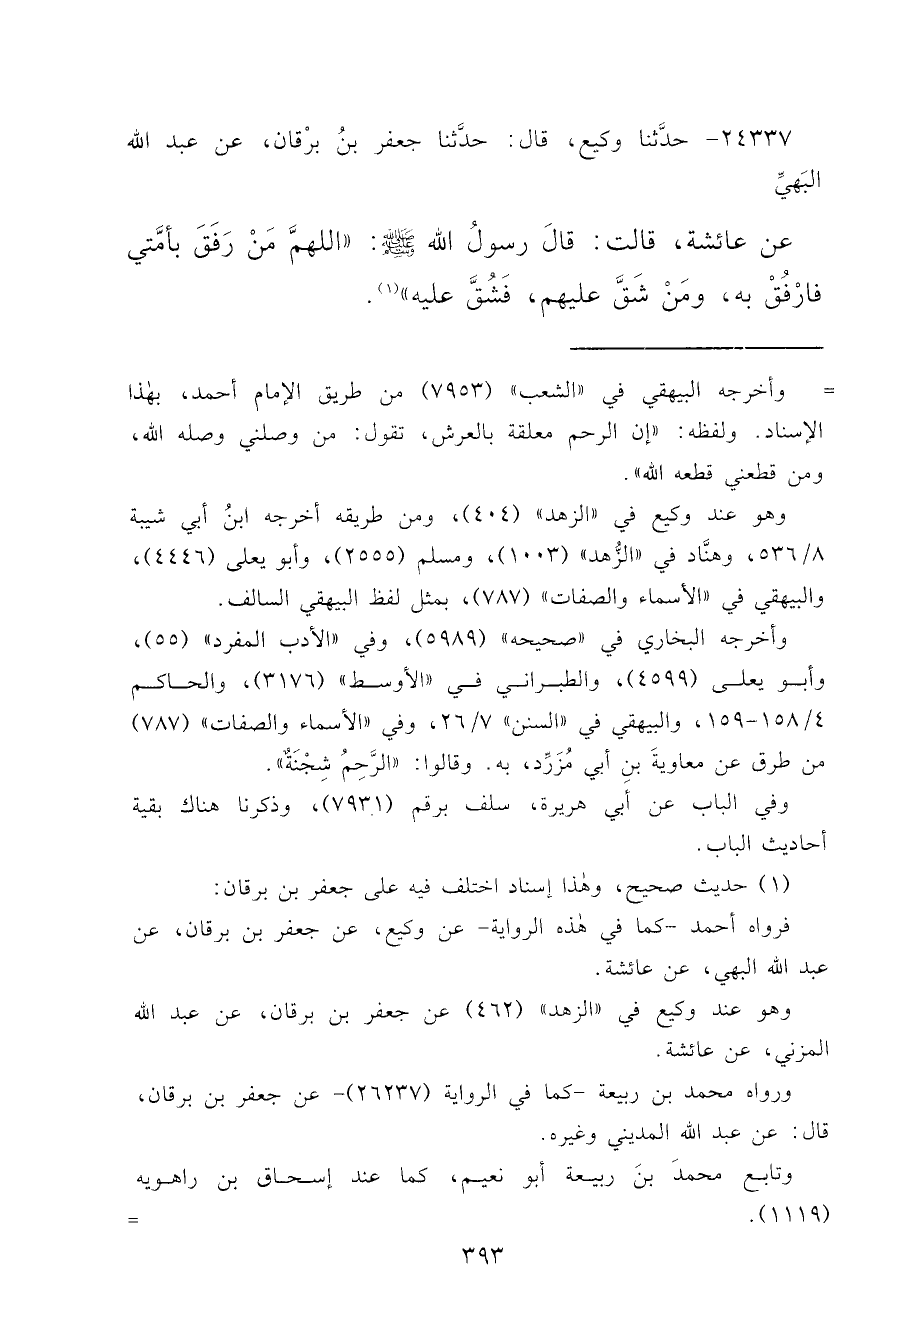 ٢٤٣٣٧- حدَّثنا وكيع، قال: حدَّثنا جعفر بنُ برْقان، عن عبد الله
البَهيِّ
عن عائشة، قالت: قالَ رسولُ الله ﷺ: «اللهمَّ مَنْ رَفَقَ بأمَّتي
فارْفُقْ به، ومَنْ شَقَّ عليهم، فَشُقَّ عليه»(١).
= وأخرجه البيهقي في «الشعب» (٧٩٥٣) من طريق الإمام أحمد، بهٰذا
الإسناد. ولفظه: «إن الرحم معلقة بالعرش، تقول: من وصلني وصله الله،
ومن قطعني قطعه الله».
وهو عند وكيع في «الزهد» (٤٠٤)، ومن طريقه أخرجه ابنُ أبي شيبة
٥٣٦/٨، وهنَّاد في «الزُّهد» (١٠٠٣)، ومسلم (٢٥٥٥)، وأبو يعلى (٤٤٤٦)،
والبيهقي في «الأسماء والصفات» (٧٨٧)، بمثل لفظ البيهقي السالف.
وأخرجه البخاري في «صحيحه» (٥٩٨٩)، وفي «الأدب المفرد» (٥٥)،
وأبو يعلى (٤٥٩٩)، والطبراني في «الأوسط» (٣١٧٦)، والحاكم
١٥٨/٤-١٥٩، والبيهقي في «السنن» ٢٦/٧، وفي «الأسماء والصفات» (٧٨٧)
من طرق عن معاويةَ بنِ أبي مُزَرِّد، به. وقالوا: «الرَّحِمُ شِجْنَةٌ».
وفي الباب عن أبي هريرة، سلف برقم (٧٩٣١)، وذكرنا هناك بقية
أحاديث الباب.
(١) حديث صحيح، وهٰذا إسناد اختلف فيه على جعفر بن برقان:
فرواه أحمد -كما في هٰذه الرواية- عن وكيع، عن جعفر بن برقان، عن
عبد الله البهي، عن عائشة.
وهو عند وكيع في «الزهد» (٤٦٢) عن جعفر بن برقان، عن عبد الله
المزني، عن عائشة.
ورواه محمد بن ربيعة -كما في الرواية (٢٦٢٣٧)- عن جعفر بن برقان،
قال: عن عبد الله المديني وغيره.
وتابع محمدَ بنَ ربيعة أبو نعيم، كما عند إسحاق بن راهويه
(١١١٩). =
٣٩٣